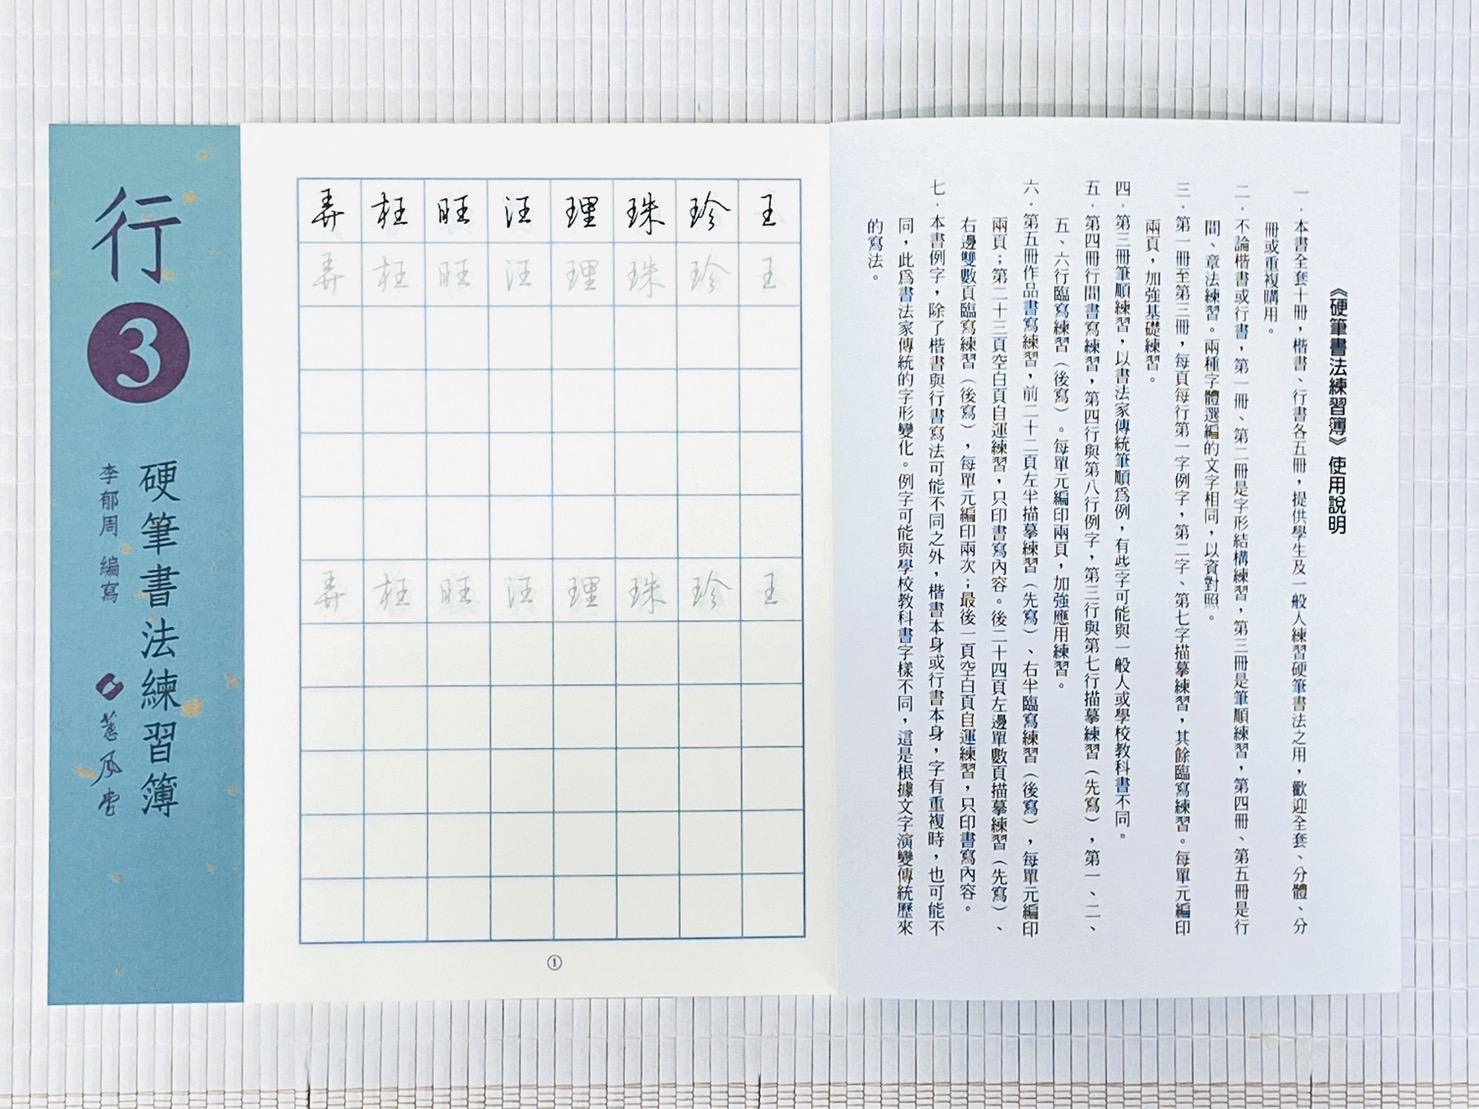 《硬筆書法練習簿》使用說明
一．本書全套十冊，楷書、行書各五冊，提供學生及一般人練習硬筆書法之用，歡迎全套、分體、分
冊或重複購用。
二．不論楷書或行書，第一冊、第二冊是字形結構練習，第三冊是筆順練習，第四冊、第五冊是行
間、章法練習。兩種字體選編的文字相同，以資對照。
三．第一冊至第三冊，每頁每行第一字例字，第二字、第七字描摹練習，其餘臨寫練習。每單元編印
兩頁，加強基礎練習。
四．第三冊筆順練習，以書法家傳統筆順爲例，有些字可能與一般人或學校教科書不同。
五．第四冊行間書寫練習，第四行與第八行例字，第三行與第七行描摹練習（先寫），第一、二、
五、六行臨寫練習（後寫）。每單元編印兩頁，加強應用練習。
六．第五冊作品書寫練習，前二十二頁左半描摹練習（先寫）、右半臨寫練習（後寫），每單元編印
兩頁；第二十三頁空白頁自運練習，只印書寫內容。後二十四頁左邊單數頁描摹練習（先寫）、
右邊雙數頁臨寫練習（後寫），每單元編印兩次；最後一頁空白頁自運練習，只印書寫內容。
七．本書例字，除了楷書與行書寫法可能不同之外，楷書本身或行書本身，字有重複時，也可能不
同，此爲書法家傳統的字形變化。例字可能與學校教科書字樣不同，這是根據文字演變傳統歷來
的寫法。
王王王
珍珍珍
珠珠珠
理理理
汪汪汪
旺旺旺
枉枉枉
弄弄弄
①
行3
硬筆書法練習簿
李郁周 編寫
蕙風堂